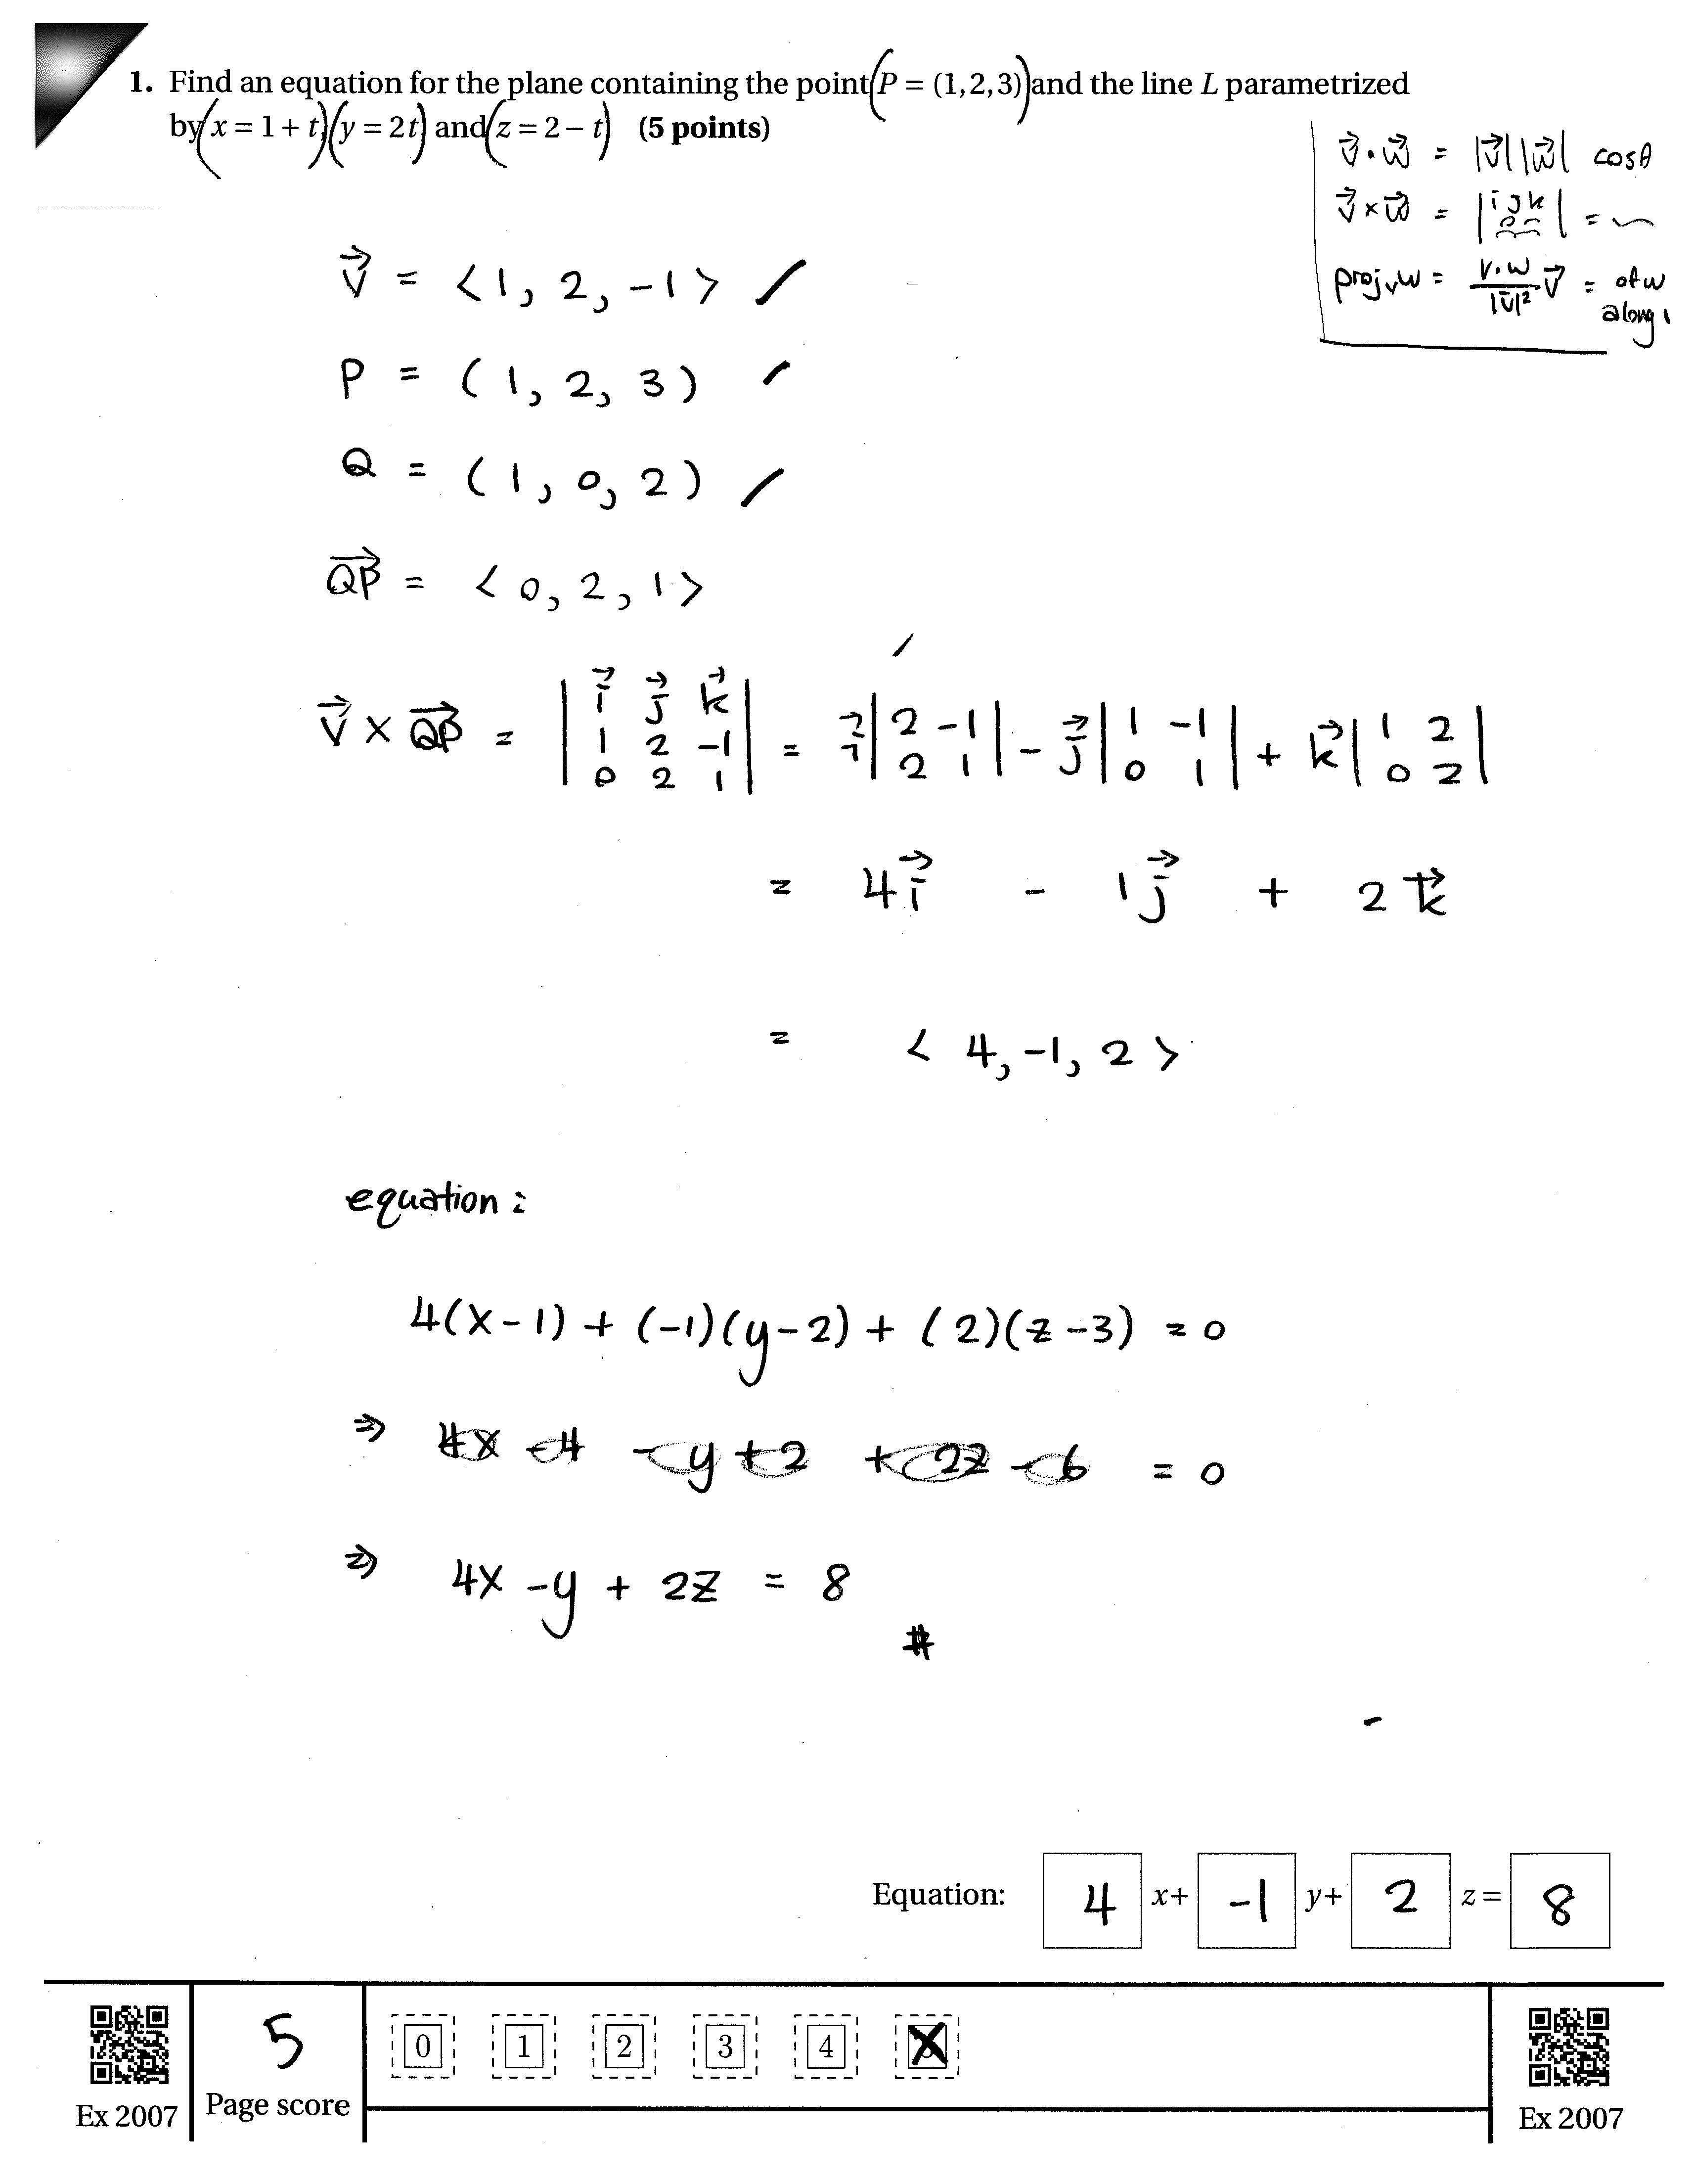 1. Find an equation for the plane containing the point (P = (1,2,3)) and the line L parametrized
by (x = 1 + t,) (y = 2t,) and (z = 2 − t) (5 points)
v⃗ · w⃗ = |v⃗| |w⃗| cosθ
v⃗ × w⃗ = | i j k | =
proj_v w = v·w / |v⃗|² v⃗ = of w
along
v⃗ = < 1, 2, -1 >
P = ( 1, 2, 3 )
Q = ( 1, 0, 2 )
QP⃗ = < 0, 2, 1 >
v⃗ × QP⃗ = | i⃗ j⃗ k⃗ ; 1 2 -1 ; 0 2 1 | = i⃗ | 2 -1 ; 2 1 | - j⃗ | 1 -1 ; 0 1 | + k⃗ | 1 2 ; 0 2 |
= 4 i⃗ - 1 j⃗ + 2 k⃗
= < 4, -1, 2 >
equation :
4(x-1) + (-1)(y-2) + (2)(z-3) = 0
⇒ 4x - 4 - y + 2 + 2z - 6 = 0
⇒ 4x - y + 2z = 8
#
Equation: 4 x+ -1 y+ 2 z = 8
5 0 1 2 3 4
Ex 2007 Page score Ex 2007